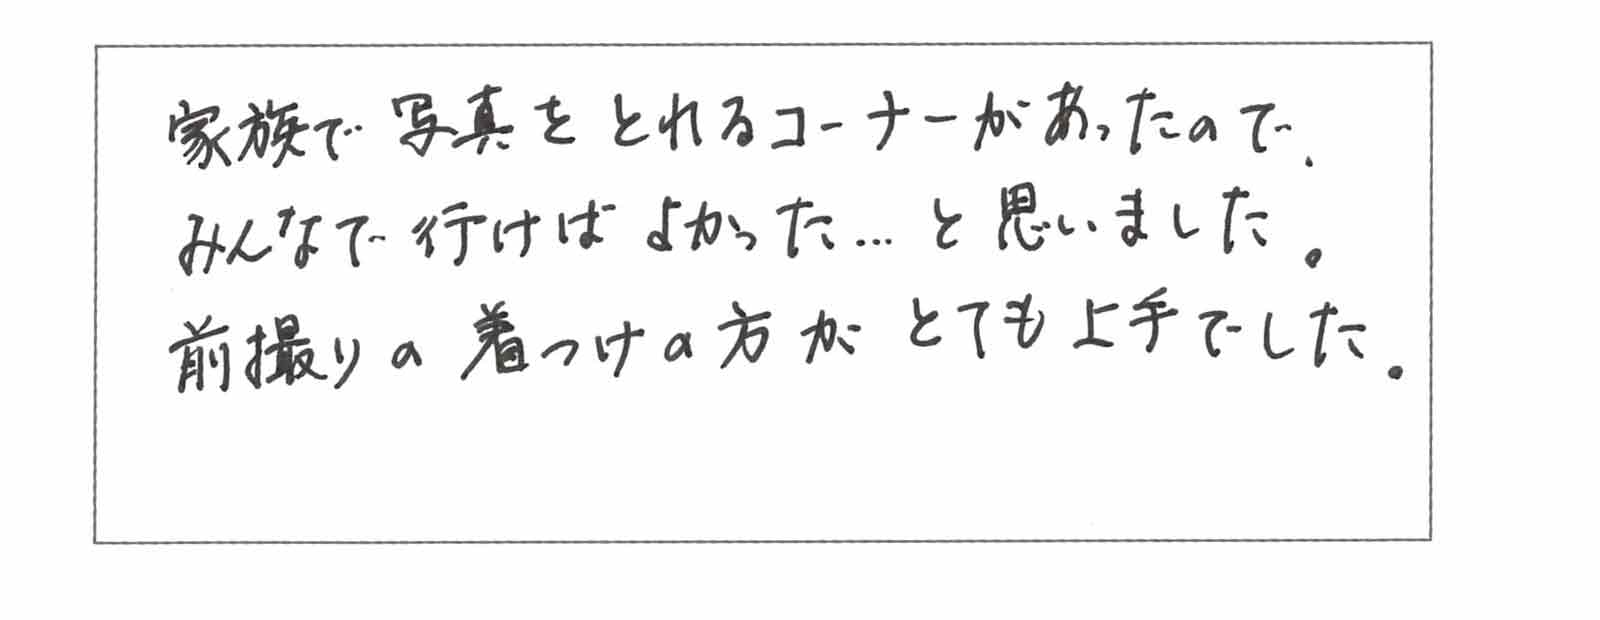 家族で写真をとれるコーナーがあったので、
みんなで行けばよかった…と思いました。
前撮りの着つけの方がとても上手でした。